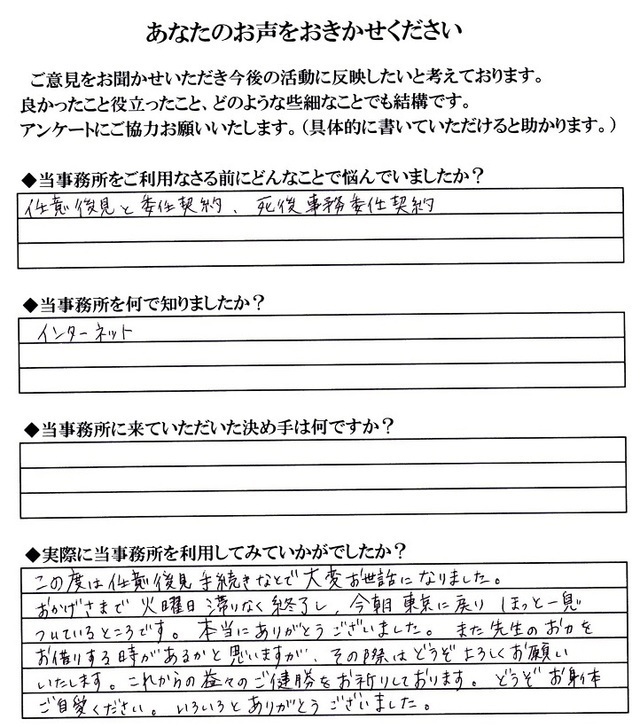 あなたのお声をおきかせください
ご意見をお聞かせいただき今後の活動に反映したいと考えております。
良かったこと役立ったこと、どのような些細なことでも結構です。
アンケートにご協力お願いいたします。（具体的に書いていただけると助かります。）
◆当事務所をご利用なさる前にどんなことで悩んでいましたか？
任意後見と委任契約、死後事務委任契約
◆当事務所を何で知りましたか？
インターネット
◆当事務所に来ていただいた決め手は何ですか？
◆実際に当事務所を利用してみていかがでしたか？
この度は任意後見手続きなどで大変お世話になりました。
おかげさまで火曜日滞りなく終了し、今朝東京に戻りほっと一息
ついているところです。本当にありがとうございました。また先生のお力を
お借りする時があるかと思いますが、その際はどうぞよろしくお願い
いたします。これからの益々のご健勝をお祈りしております。どうぞお身体
ご自愛ください。いろいろとありがとうございました。